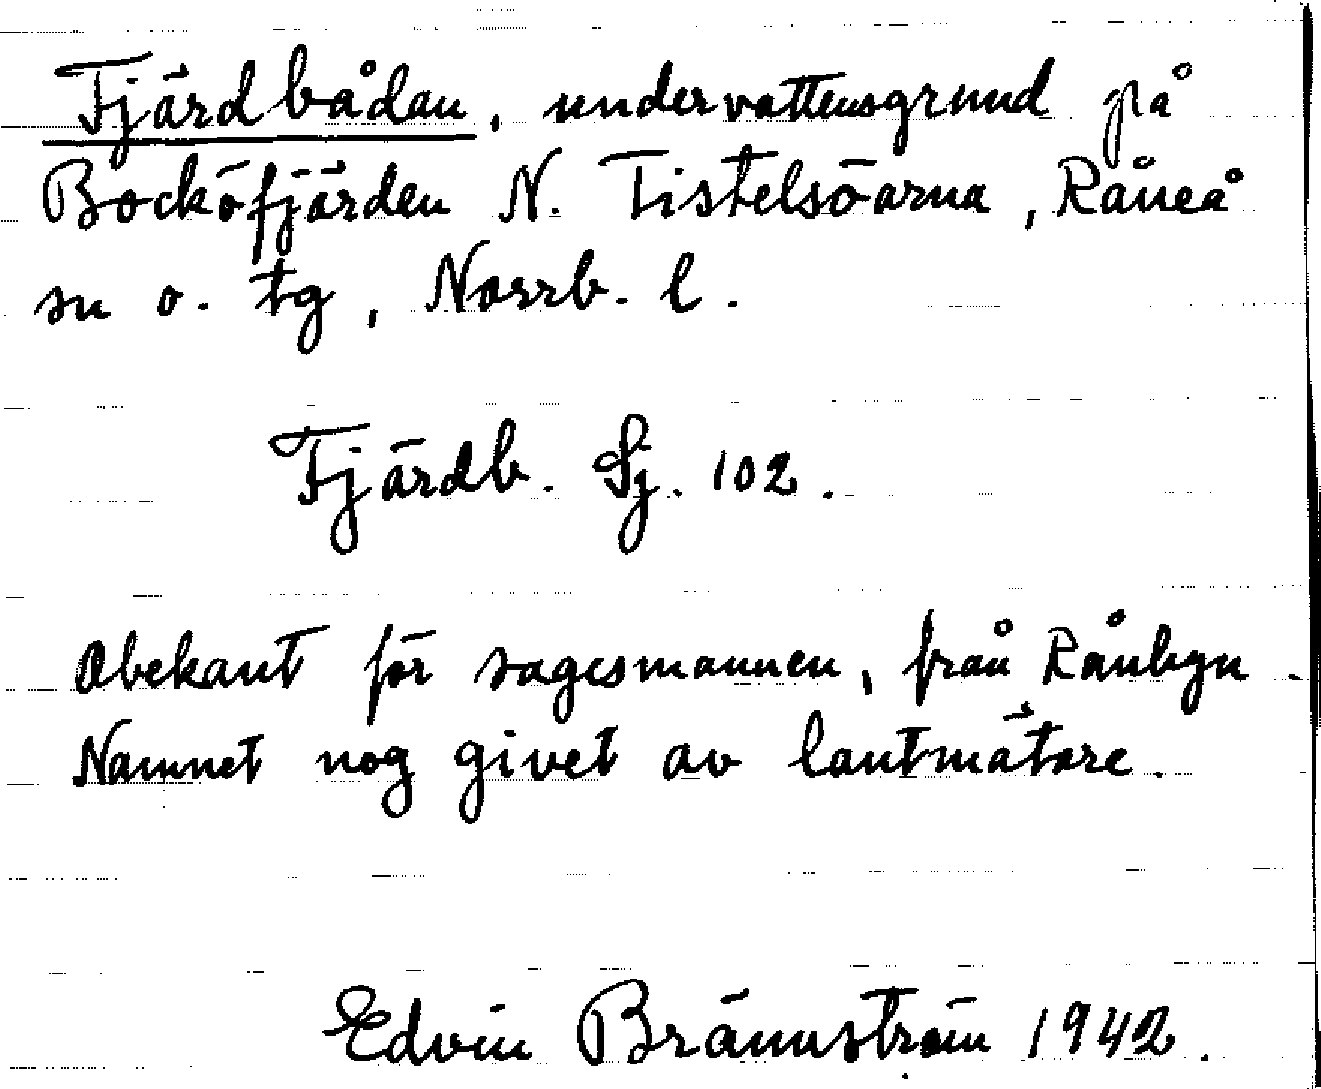 Fjärdbådan, undervattensgrund på
Bocköfjärden N. Tistelsöarna, Råneå
sn o. tg, Norrb. l.
Fjärdb. Sj. 102.
Obekant för sagesmannen, från Rånbyn.
Namnet nog givet av lantmätare.
Edvin Brännström 1942.